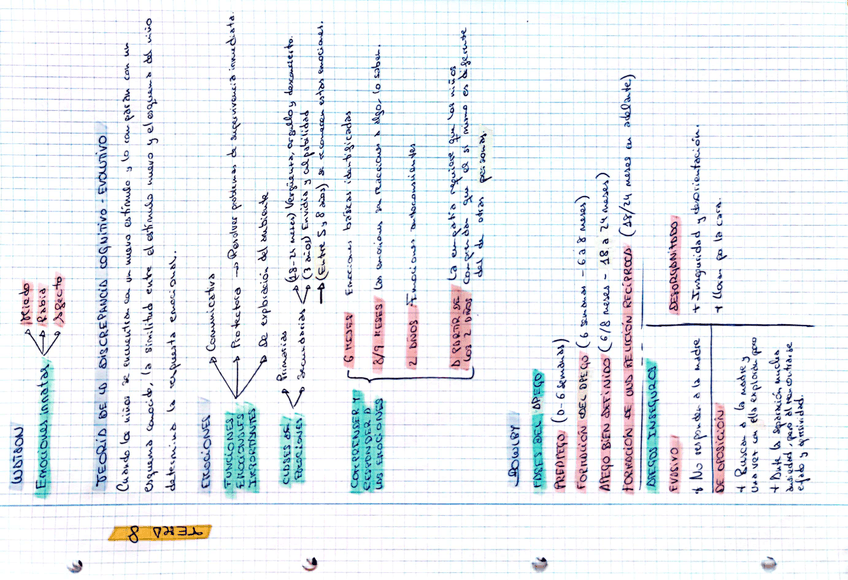 TEMA 8
WATSON
Emociones innatas
Miedo
Rabia
Afecto
TEORÍA DE LA DISCREPANCIA COGNITIVO - EVOLUTIVO
Cuando los niños se encuentran con un nuevo estímulo y lo comparan con un
esquema conocido, la similitud entre el estímulo nuevo y el esquema del niño
determina la respuesta emocional.
EMOCIONES
FUNCIONES
EMOCIONALES
IMPORTANTES
Comunicativa
Protectora → Resolver problemas de supervivencia inmediata.
De exploración del ambiente
CLASES DE
EMOCIONES
Primarias
Secundarias
(18-24 meses) Vergüenza, orgullo y desconcierto.
(3 años) Envidia y culpabilidad
(Entre 5 y 8 años) se reconocen estas emociones.
COMPRENDER Y
RESPONDER A
LAS EMOCIONES
6 MESES Emociones básicas identificadas
8/9 MESES Las emociones son reacciones a algo, lo saben.
2 AÑOS Emociones autoconscientes
A PARTIR DE
LOS 2 AÑOS
La empatía requiere que los niños
comprendan que el sí mismo es diferente
del de otras personas.
BOWLBY
FASES DEL APEGO
PREAPEGO (0-6 semanas)
FORMACIÓN DEL APEGO (6 semanas - 6 a 8 meses)
APEGO BIEN DEFINIDO (6/8 meses - 18 a 24 meses)
FORMACIÓN DE UNA RELACIÓN RECÍPROCA (18/24 meses en adelante)
APEGOS INSEGUROS
EVASIVO
+ No responden a la madre
DE OPOSICIÓN
+ Buscan a la madre y
una vez en ella exploran poco
+ Ante la separación mucha
ansiedad, pero al reencontrarse
enfado y agresividad.
DESORGANIZADO
+ Inseguridad y desorientación.
+ Lloran por la cara.